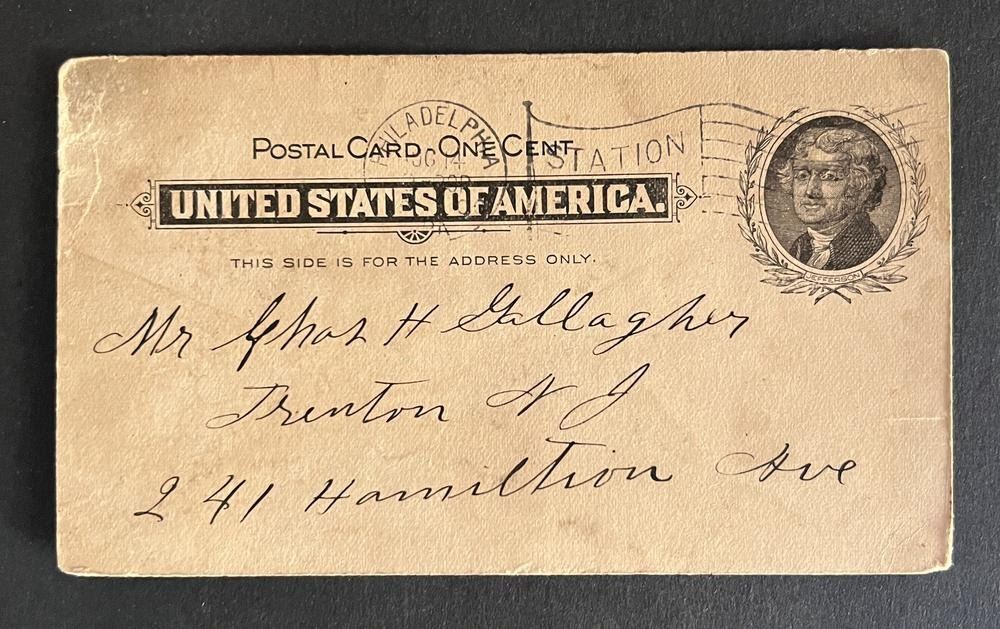 PHILADELPHIA
STATION
POSTAL CARD - ONE CENT.
UNITED STATES OF AMERICA.
THIS SIDE IS FOR THE ADDRESS ONLY.
JEFFERSON
Mr Chas H Gallagher
Trenton N J
241 Hamiltion Ave